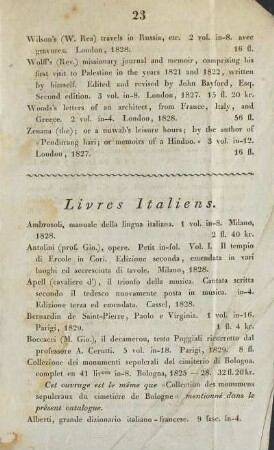 23
Wilson's (W. Rea) travels in Russia, etc. 2 vol. in-8. avec
gravures. London, 1828. 16 fl.
Wolff's (Rev.) missionary journal and memoir, comprising his
first visit to Palestine in the years 1821 and 1822, written
by himself. Edited and revised by John Bayford, Esq.
Second edition. 3 vol. in-8. London, 1827. 15 fl. 20 kr.
Woods's letters of an architect, from France, Italy, and
Greece. 2 vol. in-4. London, 1828. 56 fl.
Zenana (the); or a nuwab's leisure hours; by the author of
»Pandurang hari; or memoirs of a Hindoo. » 3 vol. in-12.
London, 1827. 16 fl.
Livres Italiens.
Ambrosoli, manuale della lingua italiana. 1 vol. in-8. Milano,
1828. 2 fl. 40 kr.
Antolini (prof. Gio.), opere. Petit in-fol. Vol. I. Il tempio
di Ercole in Cori. Edizione seconda, emendata in vari
luoghi ed accresciuta di tavole. Milano, 1828.
Apell (cavaliere d'), il trionfo della musica. Cantata scritta
secondo il tedesco nuovamente posta in musica. in-4.
Edizione terza ed emendata. Cassel, 1828.
Bernardin de Saint-Pierre, Paolo e Virginia. 1 vol. in-16.
Parigi, 1829. 1 fl. 4 kr.
Boccacci (M. Gio.), il decamerou, testo Poggiali ricorretto dal
professore A. Cerutti. 5 vol. in-18. Parigi, 1829. 8 fl.
Collezione dei monumenti sepolcrali del cimiterio di Bologna.
complet en 41 livons in-8. Bologna, 1825 — 28. 32 fl. 20 kr.
Cet ouvrage est le même que »Collection des monumens
sepulcraux du cimetière de Bologne» mentionné dans le
présent catalogue.
Alberti, grande dizionario italiano - francese. 9 fasc. in-4.